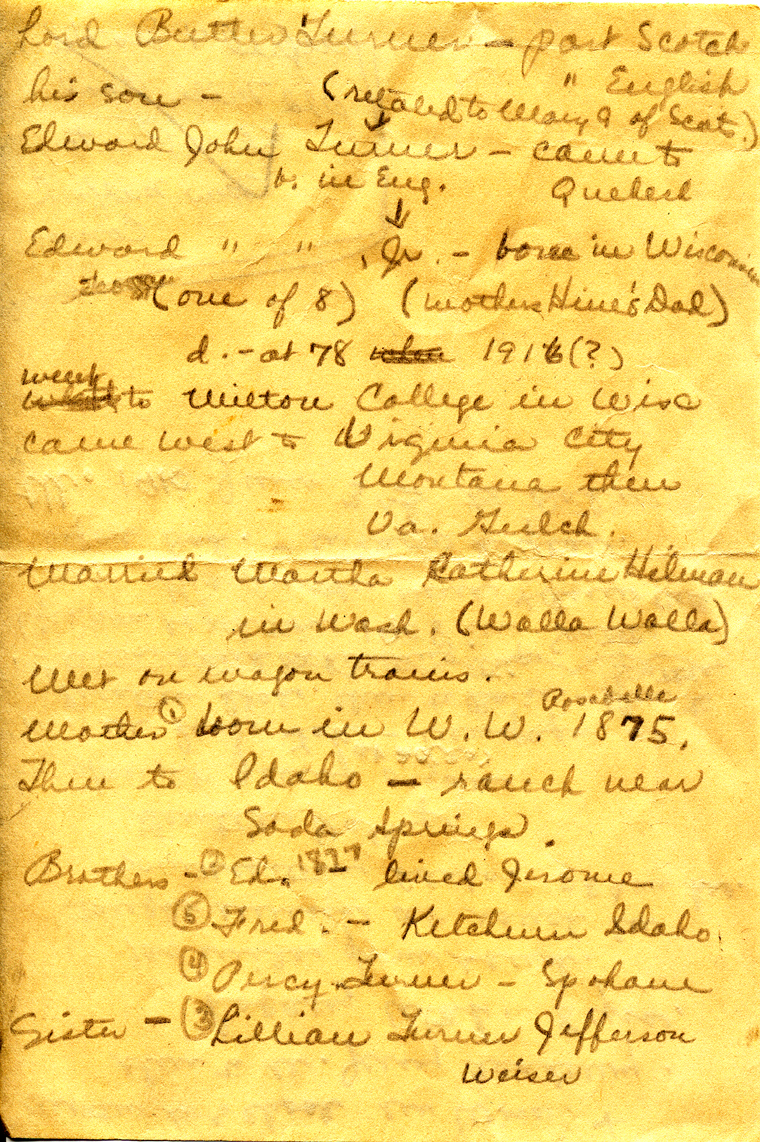 Lord Butler Turner - part Scotch
" English
his son - (related to Mary Q of Scots.)
Edward John Turner - came to
b. in Eng. Quebeck
Edward " " , Jr. - born in Wisconsin
(one of 8) (mothers Hine's Dad)
d. - at 78 when 1916(?)
went
to Milton College in Wisc
came west to Virginia City
Montana then
Va. Gulch.
Married Martha Katherine Hilman
in Wash. (Walla Walla)
Met on wagon trains.
Rosebelle
Mother ① born in W. W. 1875.
Then to Idaho - ranch near
Soda Springs.
Brothers - ② Ed. 1877 lived Jerome
⑤ Fred. - Ketchum Idaho
④ Percy Turner - Spokane
Sister - ③ Lillian Turner Jefferson
Weiser